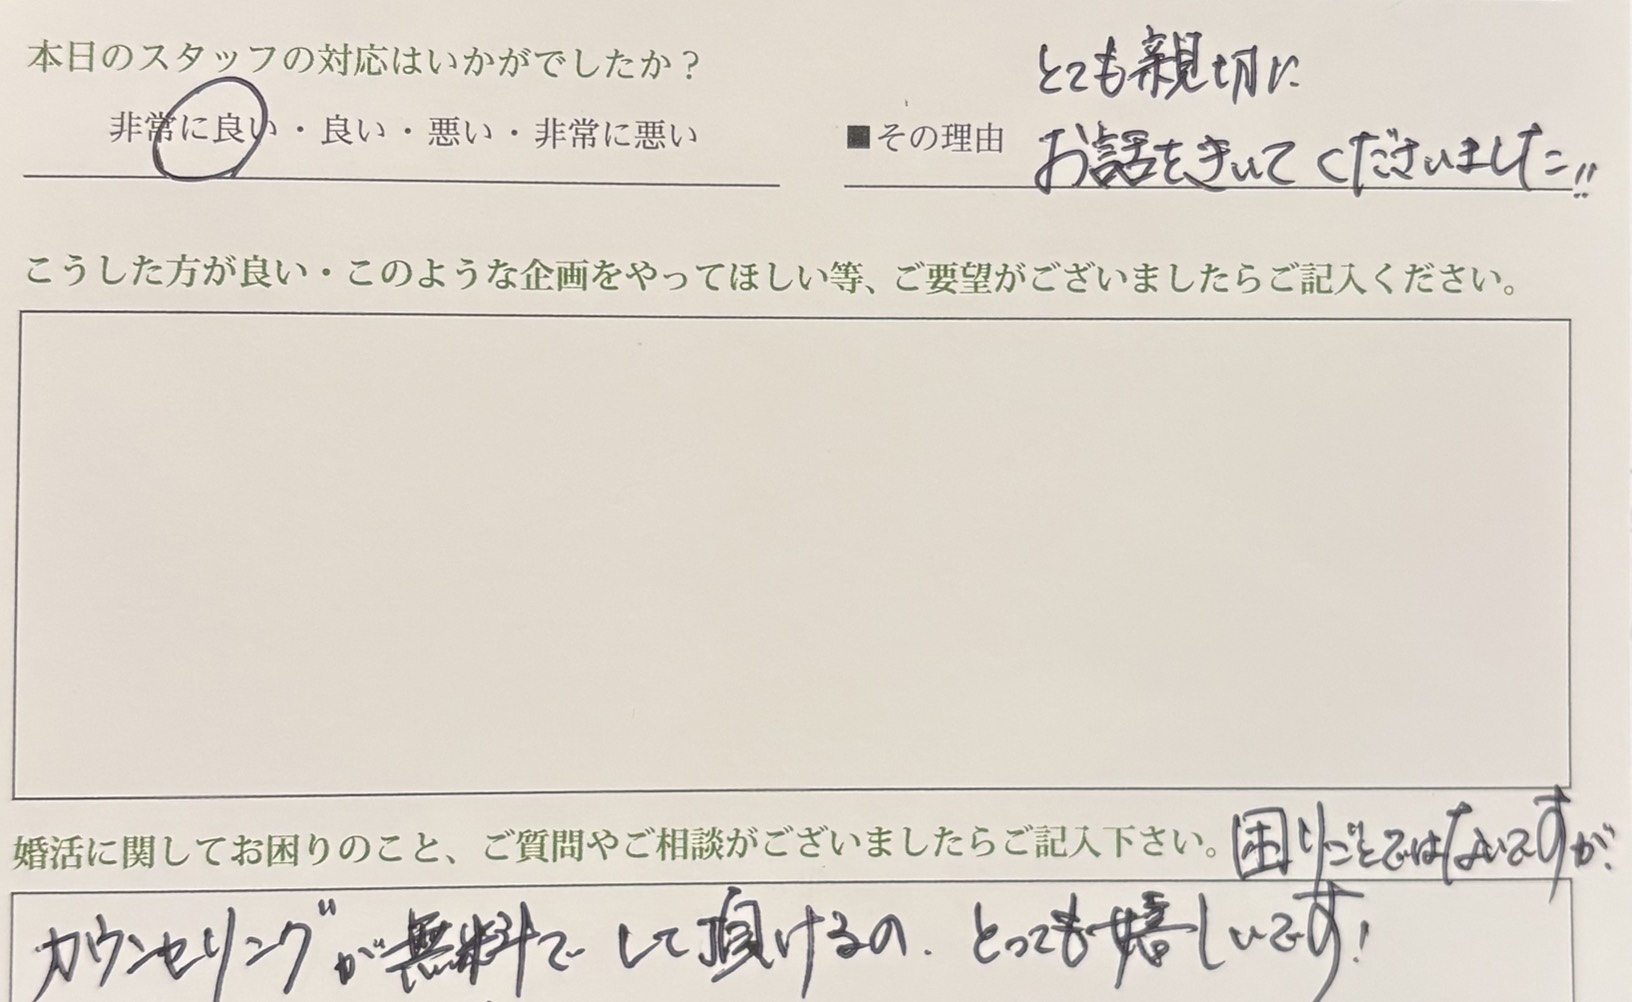 本日のスタッフの対応はいかがでしたか？
非常に良い・良い・悪い・非常に悪い
■その理由
とても親切に
お話をきいてくださいました!!
こうした方が良い・このような企画をやってほしい等、ご要望がございましたらご記入ください。
婚活に関してお困りのこと、ご質問やご相談がございましたらご記入下さい。
困りごとではないですが、
カウンセリングが無料でして頂けるの、とっても嬉しいです!